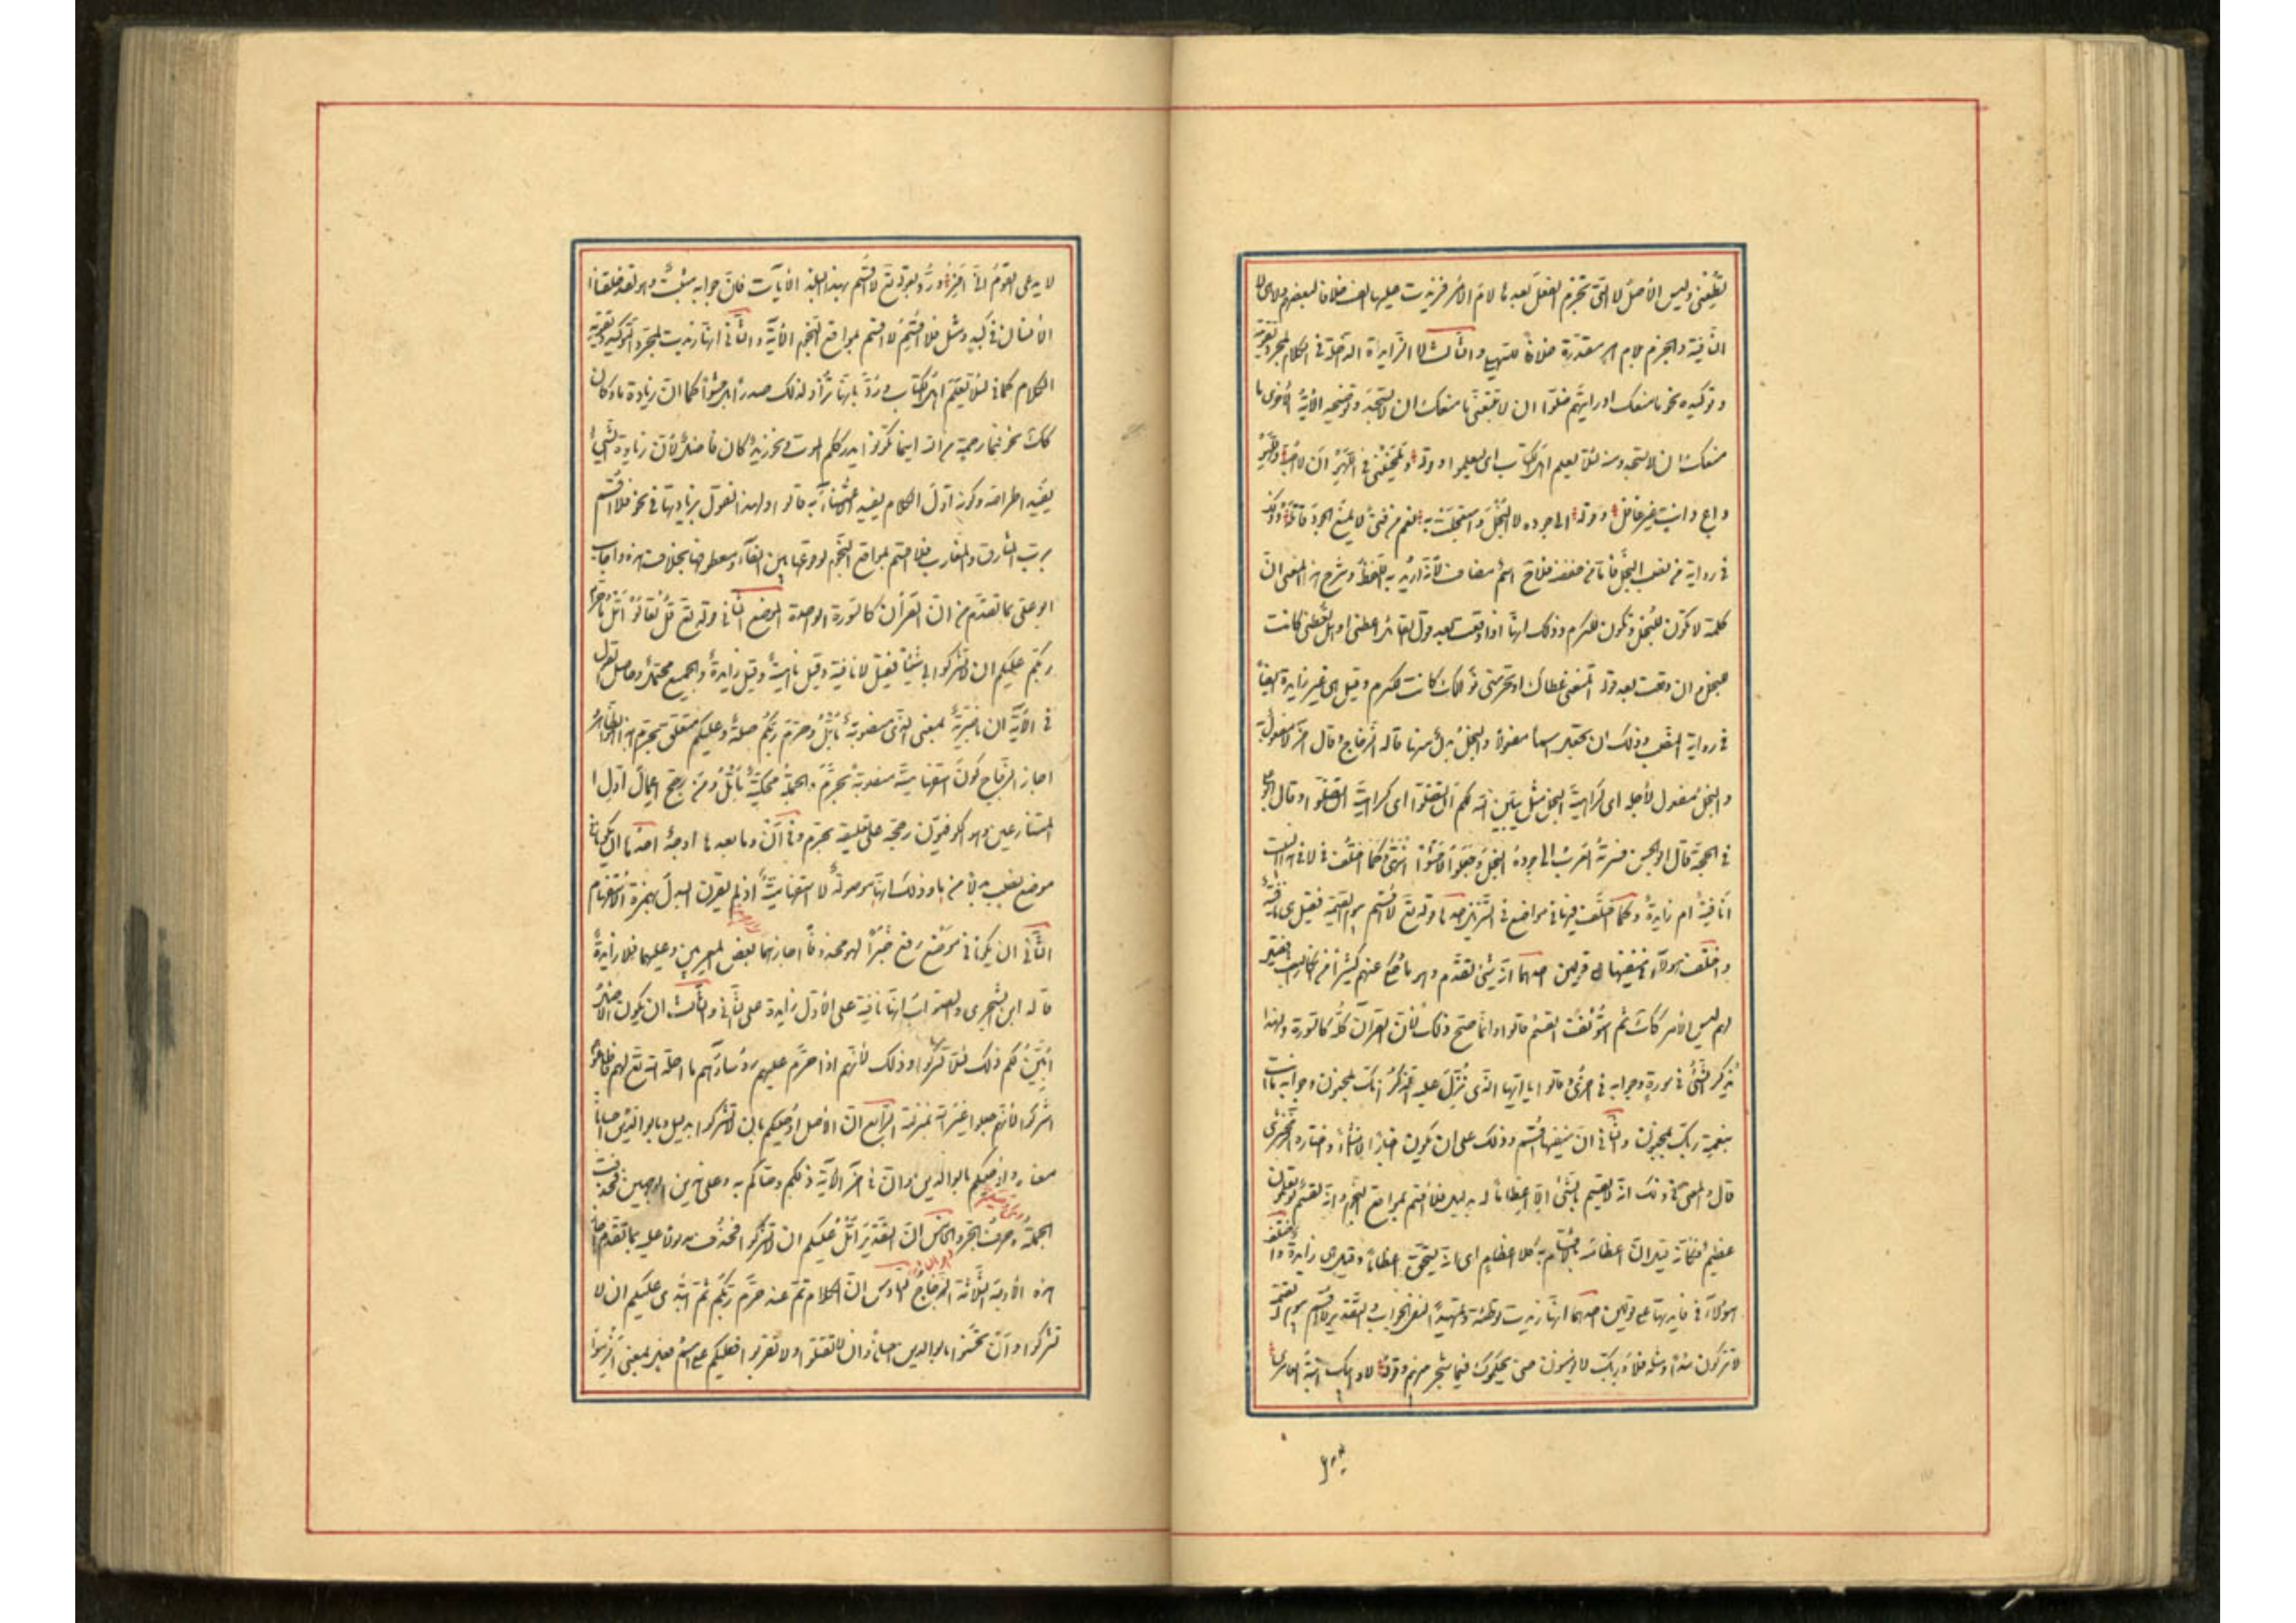 تطيعني وليس الأصل لا التي تجزم الفعل بعدها لام الأمر فزيدت عليها الف خلافا لبعضهم ولا هي لا
النافية والجزم بلام امر مقدرة خلافا للسهيلي والثالث لا الزايدة الداخلة في الكلام لمجرد تقويته
وتوكيده نحو ما منعك اذ رايتهم ضلوا ان لا تتبعني ما منعك ان لا تسجد وتوضحه الآية الأخرى ما
منعك ان تسجد ومنه لئلا يعلم اهل الكتاب اى ليعلموا وقوله وتلحينني في اللهو ان لا احبه وللهو
داع دائب غير غافل وقوله ابى جوده لا البخل واستعجلت به نعم من فتى لا يمنع الجود قاتله وذلك
في رواية من نصب البخل فاما من خفض فلا ح اسم مضاف لأنه اريد به اللفظ وشرح هذا المعنى ان
كلمة لا تكون للبخل وتكون للكرم وذلك انها اذا وقعت بعد قول القائل اعطنى او هل تعطنى كانت
للبخل وان وقعت بعد قوله اتمنعنى عطاك او تحرمنى نوالك كانت للكرم وقيل هى غير زايدة ايضا
في رواية النصب وذلك ان تجعل اسما مفعولا والبخل بدل منها قاله الزجاج وقال اخر لا مفعول به
والبخل مفعول لأجله اى كراهية البخل مثل يبين الله لكم ان تضلوا اى كراهية ان تضلوا وقال ابو على
في الحجة قال ابو الحسن فسرته العرب ابى جوده البخل وجعلوا لا حشوا انتهى وكما اختلف في لا في هذا البيت
انافية ام زايدة وكما اختلف فيها في مواضع في التنزيل احدها قوله تع لا اقسم بيوم القيمة فقيل هى نافية
واختلف هؤلاء في منفيها على قولين احدهما انه شئ تقدم وهو ما حكى عنهم كثيرا من انكار البعث فقيل
لهم ليس الأمر كذلك ثم استؤنف القسم قالوا وانما صح ذلك لأن القرآن كله كالسورة ولهذا
يذكر الشئ في سورة وجوابه في اخرى وقالوا يا ايها الذى نزل عليه الذكر انك لمجنون وجوابه ما انت
بنعمة ربك بمجنون والثانى ان منفيها اقسم وذلك على ان يكون اخبارا لا انشاء واختاره الزمخشرى
قال والمعنى في ذلك انه لا يقسم بالشئ الا اعظاما له بدليل فلا اقسم بمواقع النجوم وانه لقسم لو تعلمون
عظيم فكانه قيل ان اعظامه بالاقسام به كلا اعظام اى انه يستحق اعظاما وقيل هى زايدة واختلف
هؤلاء في فايدتها على قولين احدهما انها زيدت توطئة وتمهيدا لنفى الجواب والتقدير لا اقسم بيوم القيمة
لا تتركون سدى ومثله فلا وربك لا يؤمنون حتى يحكموك فيما شجر بينهم وقوله فلا وابيك ابنة العامرى
لا يدعى القوم انى افر ورد بقوله تع لا اقسم بهذا البلد الآيات فان جوابه مثبت وهو لقد خلقنا
الأنسان في كبد ومثل فلا اقسم فلا اقسم بمواقع النجوم الآية والثانى انها زيدت لمجرد التوكيد وتقوية
الكلام كما في لئلا يعلم اهل الكتاب ورد بانها لا تزاد لذلك صدرا بل حشوا كما ان زيادة ما وكان
كذلك نحو فبما رحمة من الله اينما تكونوا يدرككم الموت ونحو زيد كان فاضل لأن زيادة الشئ
يفيد اطراحه وكونه اول الكلام يفيد الاعتناء به قالوا ولهذا نقول بزيادتها في نحو فلا اقسم
برب المشارق والمغارب فلا اقسم بمواقع النجوم لوقوعها بين الفاء ومعطوفها بخلاف هذه واجاب
ابو على بما تقدم من ان القرآن كالسورة الواحدة الموضع الثانى قوله تع قل تعالوا اتل ما حرم
ربكم عليكم ان لا تشركوا به شيئا فقيل لا نافية وقيل ناهية وقيل زايدة والجميع محتمل وحاصل القول
في الآية ان ما خبرية بمعنى الذى منصوبة باتل وحرم ربكم صلة وعليكم متعلق بحرم هذا الظاهر
اجاز الزجاج كون ما استفهامية منصوبة بحرم والجملة محكية باتل ومن رجح اعمال اول ا
لمتنازعين وهم الكوفيون رجحه على تعليقه بحرم وفى ان وما بعدها اوجه احدها ان يكونا في
موضع نصب بدلا من ما وذلك انها موصولة لا استفهامية اذ لم يقترن البدل بهمزة الاستفهام
الثانى ان يكونا في موضع رفع خبرا لهو محذوفا اجازهما بعض المعربين وعليهما فلا زايدة
قاله ابن الشجرى والصواب انها نافية على الأول زايدة على الثانى والثالث ان يكون الاصل
ابين لكم ذلك لئلا تشركوا وذلك لأنهم اذا حرم عليهم رؤساؤهم ما احله الله تع لهم فاطاعوهم
اشركوا لأنهم جعلوا غير الله بمنزلته الرابع ان الاصل اوصيكم بان لا تشركوا بدليل وبالوالدين احسانا
معناه واوصيكم بالوالدين وان في اخر الآية ذلكم وصاكم به وعلى هذين الوجهين فحذفت
الجملة وحرف الجر والخامس ان التقدير اتل عليكم ان لا تشركوا فحذف مدلولا عليه بما تقدم اجاز
هذه الأوجه الثلاثة الزجاج السادس ان الكلام تم عند حرم ربكم ثم ابتدى عليكم ان لا
تشركوا وان تحسنوا بالوالدين احسانا وان لا تقتلوا ولا تقربوا فعليكم على اسم فعل بمعنى الزموا